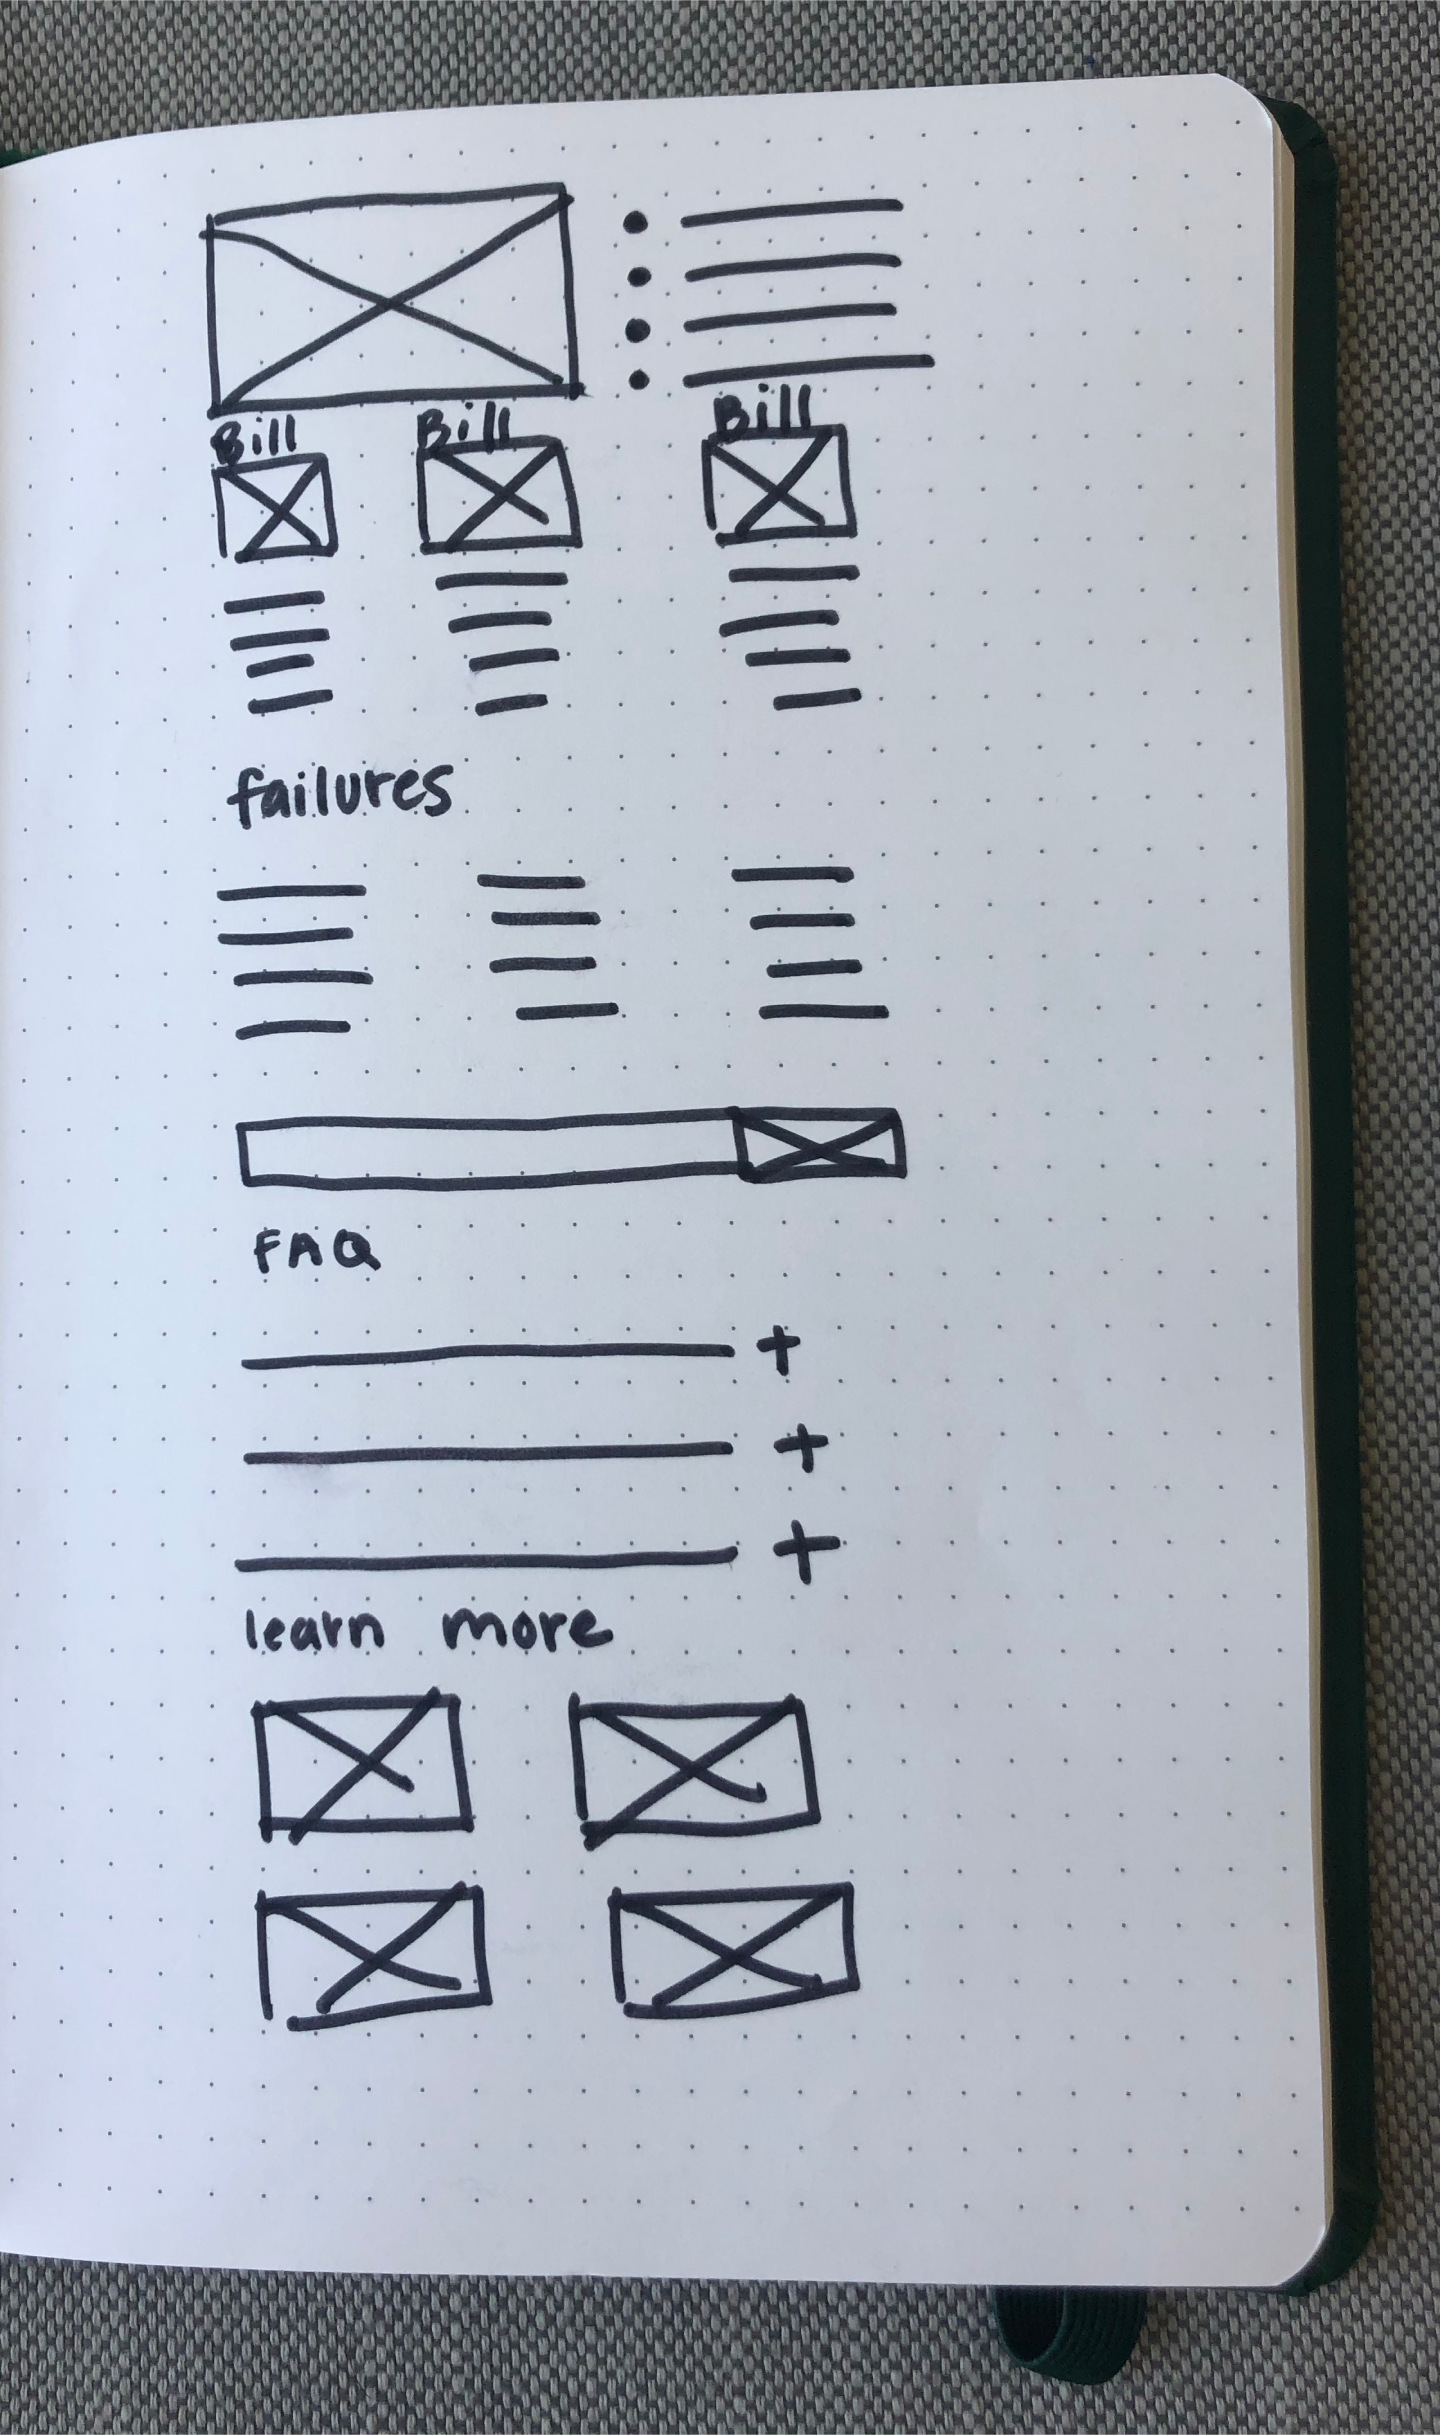 Bill Bill Bill
failures
FAQ
+
+
+
learn more